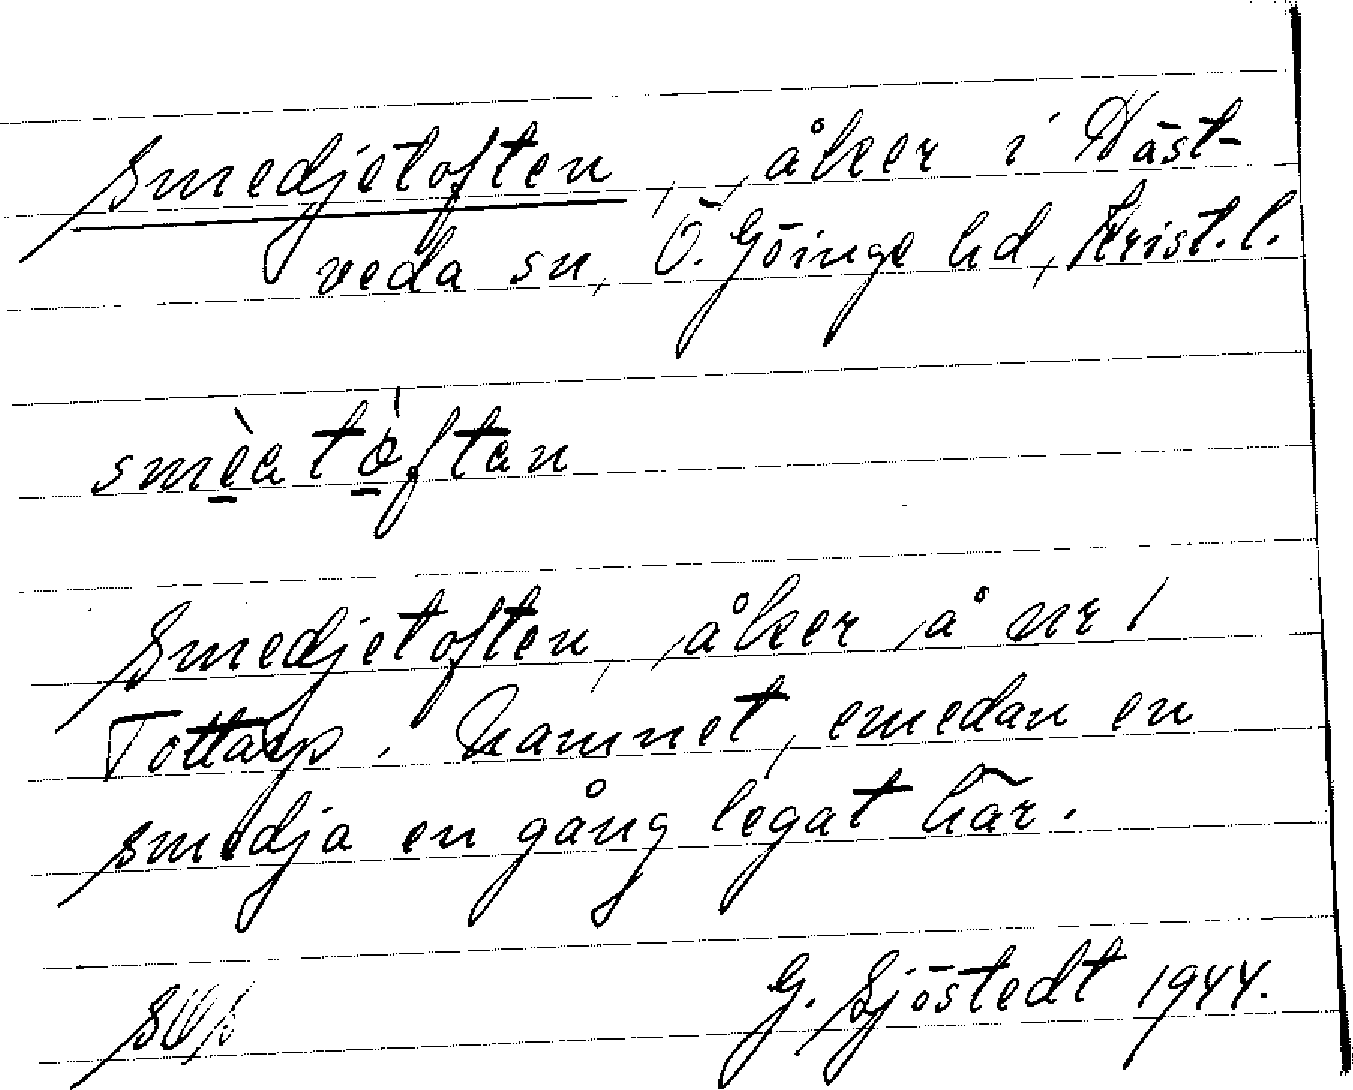 Smedjetoften, åker i Häst-
veda sn, Ö. Göinge hd, Krist.l.
smèatòftan
Smedjetoften, åker å nr 1
Tottarp. Namnet, emedan en
smedja en gång legat här.
G. Sjöstedt 1944.